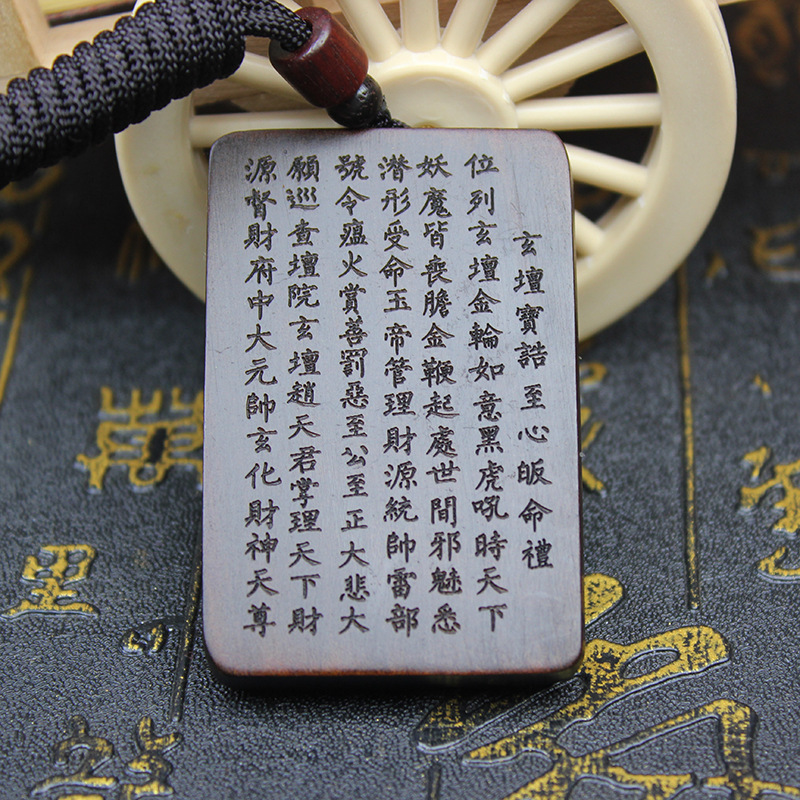 玄壇寶誥至心皈命禮
位列玄壇金輪如意黑虎吼時天下
妖魔皆喪膽金鞭起處世間邪魅悉
潛形受命玉帝管理財源統帥雷部
號令瘟火賞善罰惡至公至正大悲大
願巡查壇院玄壇趙天君掌理天下財
源督財府中大元帥玄化財神天尊